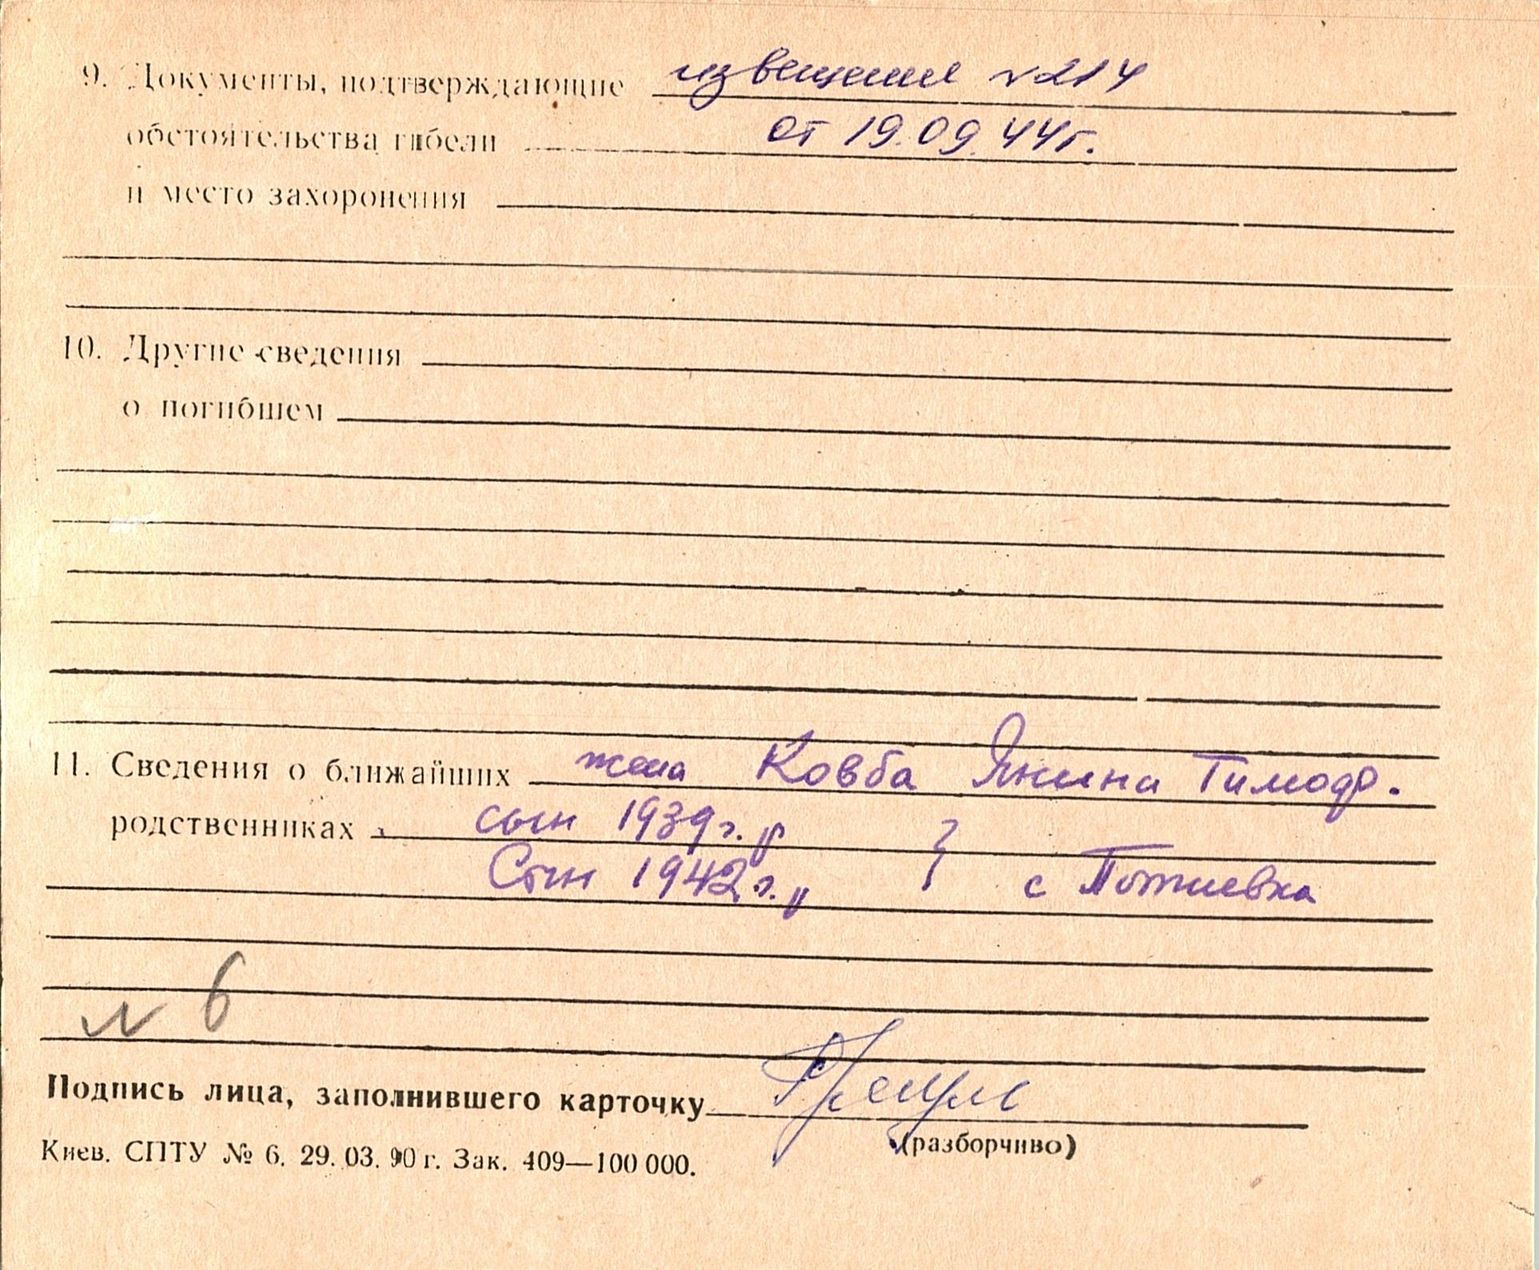 9. Документы, подтверждающие извещение № 214
обстоятельства гибели от 19.09.44г.
и место захоронения
10. Другие сведения
о погибшем
11. Сведения о ближайших жена Ковба Янина Тимоф.
родственниках сын 1939г.
Сын 1942г. } с Потиевка
№ 6
Подпись лица, заполнившего карточку
(разборчиво)
Киев. СПТУ № 6. 29. 03. 90 г. Зак. 409—100 000.